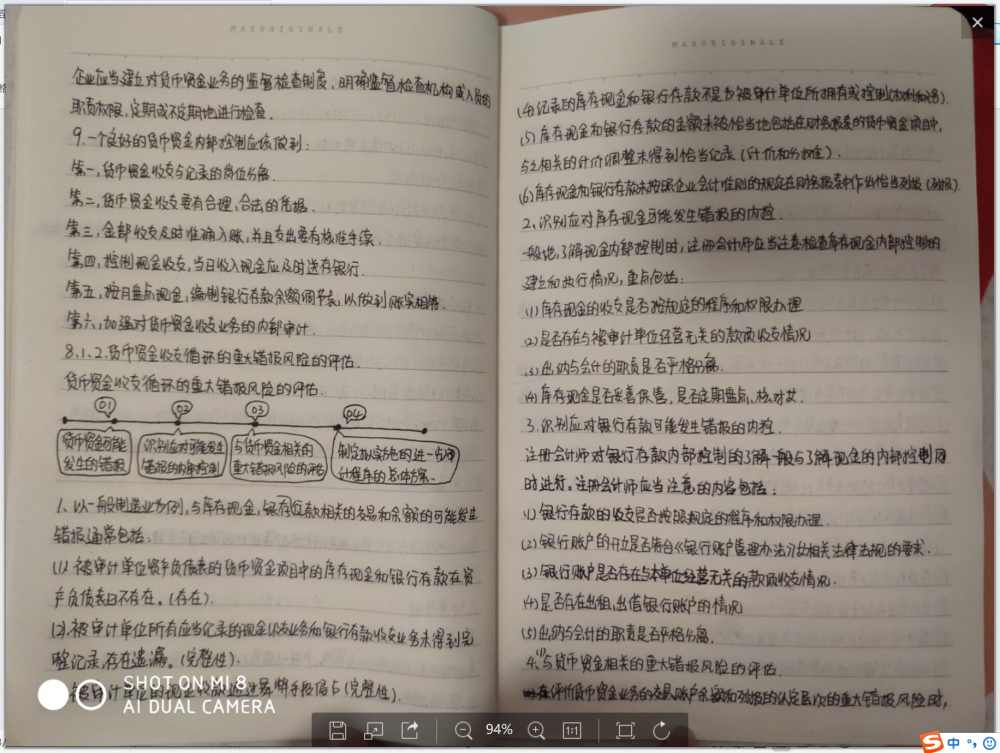 MAXORIGINALS
企业应当建立对货币资金业务的监督检查制度,明确监督检查机构或人员的
职责权限,定期或不定期地进行检查.
9.一个良好的货币资金内部控制应该做到:
第一,货币资金收支与记录的岗位分离.
第二,货币资金收支要有合理、合法的凭据.
第三,全部收支及时准确入账,并且支出要有核准手续.
第四,控制现金收支,当日收入现金应及时送存银行.
第五,按月盘点现金,编制银行存款余额调节表,以做到账实相符.
第六,加强对货币资金收支业务的内部审计.
8.1.2.货币资金收支循环的重大错报风险的评估.
货币资金收支循环的重大错报风险的评估.
01 02 03 04
货币资金可能
发生的错报
识别应对可能发生
错报的内部控制
与货币资金相关的
重大错报风险的评估
制定拟实施的进一步审
计程序的总体方案.
1、以一般制造业为例,与库存现金,银行存款相关的交易和余额的可能发生
错报通常包括:
(1).被审计单位资产负债表的货币资金项目中的库存现金和银行存款在资
产负债表日不存在。(存在).
(2).被审计单位所有应当记录的现金收支业务和银行存款收支业务未得到完
整记录,存在遗漏。(完整性).
被审计单位的现金收款通过舞弊手段 (完整性).
SHOT ON MI 8
AI DUAL CAMERA
MAXORIGINALS
(4)记录的库存现金和银行存款不是为被审计单位所拥有或控制(权利和义务).
(5)库存现金和银行存款的金额未被恰当地包括在财务报表的货币资金项目中,
与之相关的计价调整未得到恰当记录(计价和分摊).
(6)库存现金和银行存款未按照企业会计准则的规定在财务报表中作出恰当列报(列报).
2、识别应对库存现金可能发生错报的内控.
一般地,了解现金内部控制时,注册会计师应当注意检查库存现金内部控制的
建立和执行情况,重点包括:
(1)库存现金的收支是否按规定的程序和权限办理
(2)是否存在与被审计单位经营无关的款项收支情况
(3)出纳与会计的职责是否严格分离.
(4)库存现金是否妥善保管,是否定期盘点、核对
3.识别应对银行存款可能发生错报的内控.
注册会计师对银行存款内部控制的了解一般与了解现金的内部控制同
时进行。注册会计师应当注意的内容包括:
(1)银行存款的收支是否按照规定的程序和权限办理.
(2)银行账户的开立是否符合《银行账户管理办法》以相关法律法规的要求.
(3)银行账户是否存在与本单位经营无关的款项收支情况.
(4)是否存在出租、出借银行账户的情况
(5)出纳与会计的职责是否严格分离.
4、(1)与货币资金相关的重大错报风险的评估.
在评价货币资金业务的交易、账户余额和列报的认定层次的重大错报风险时,
94%
1:1
中